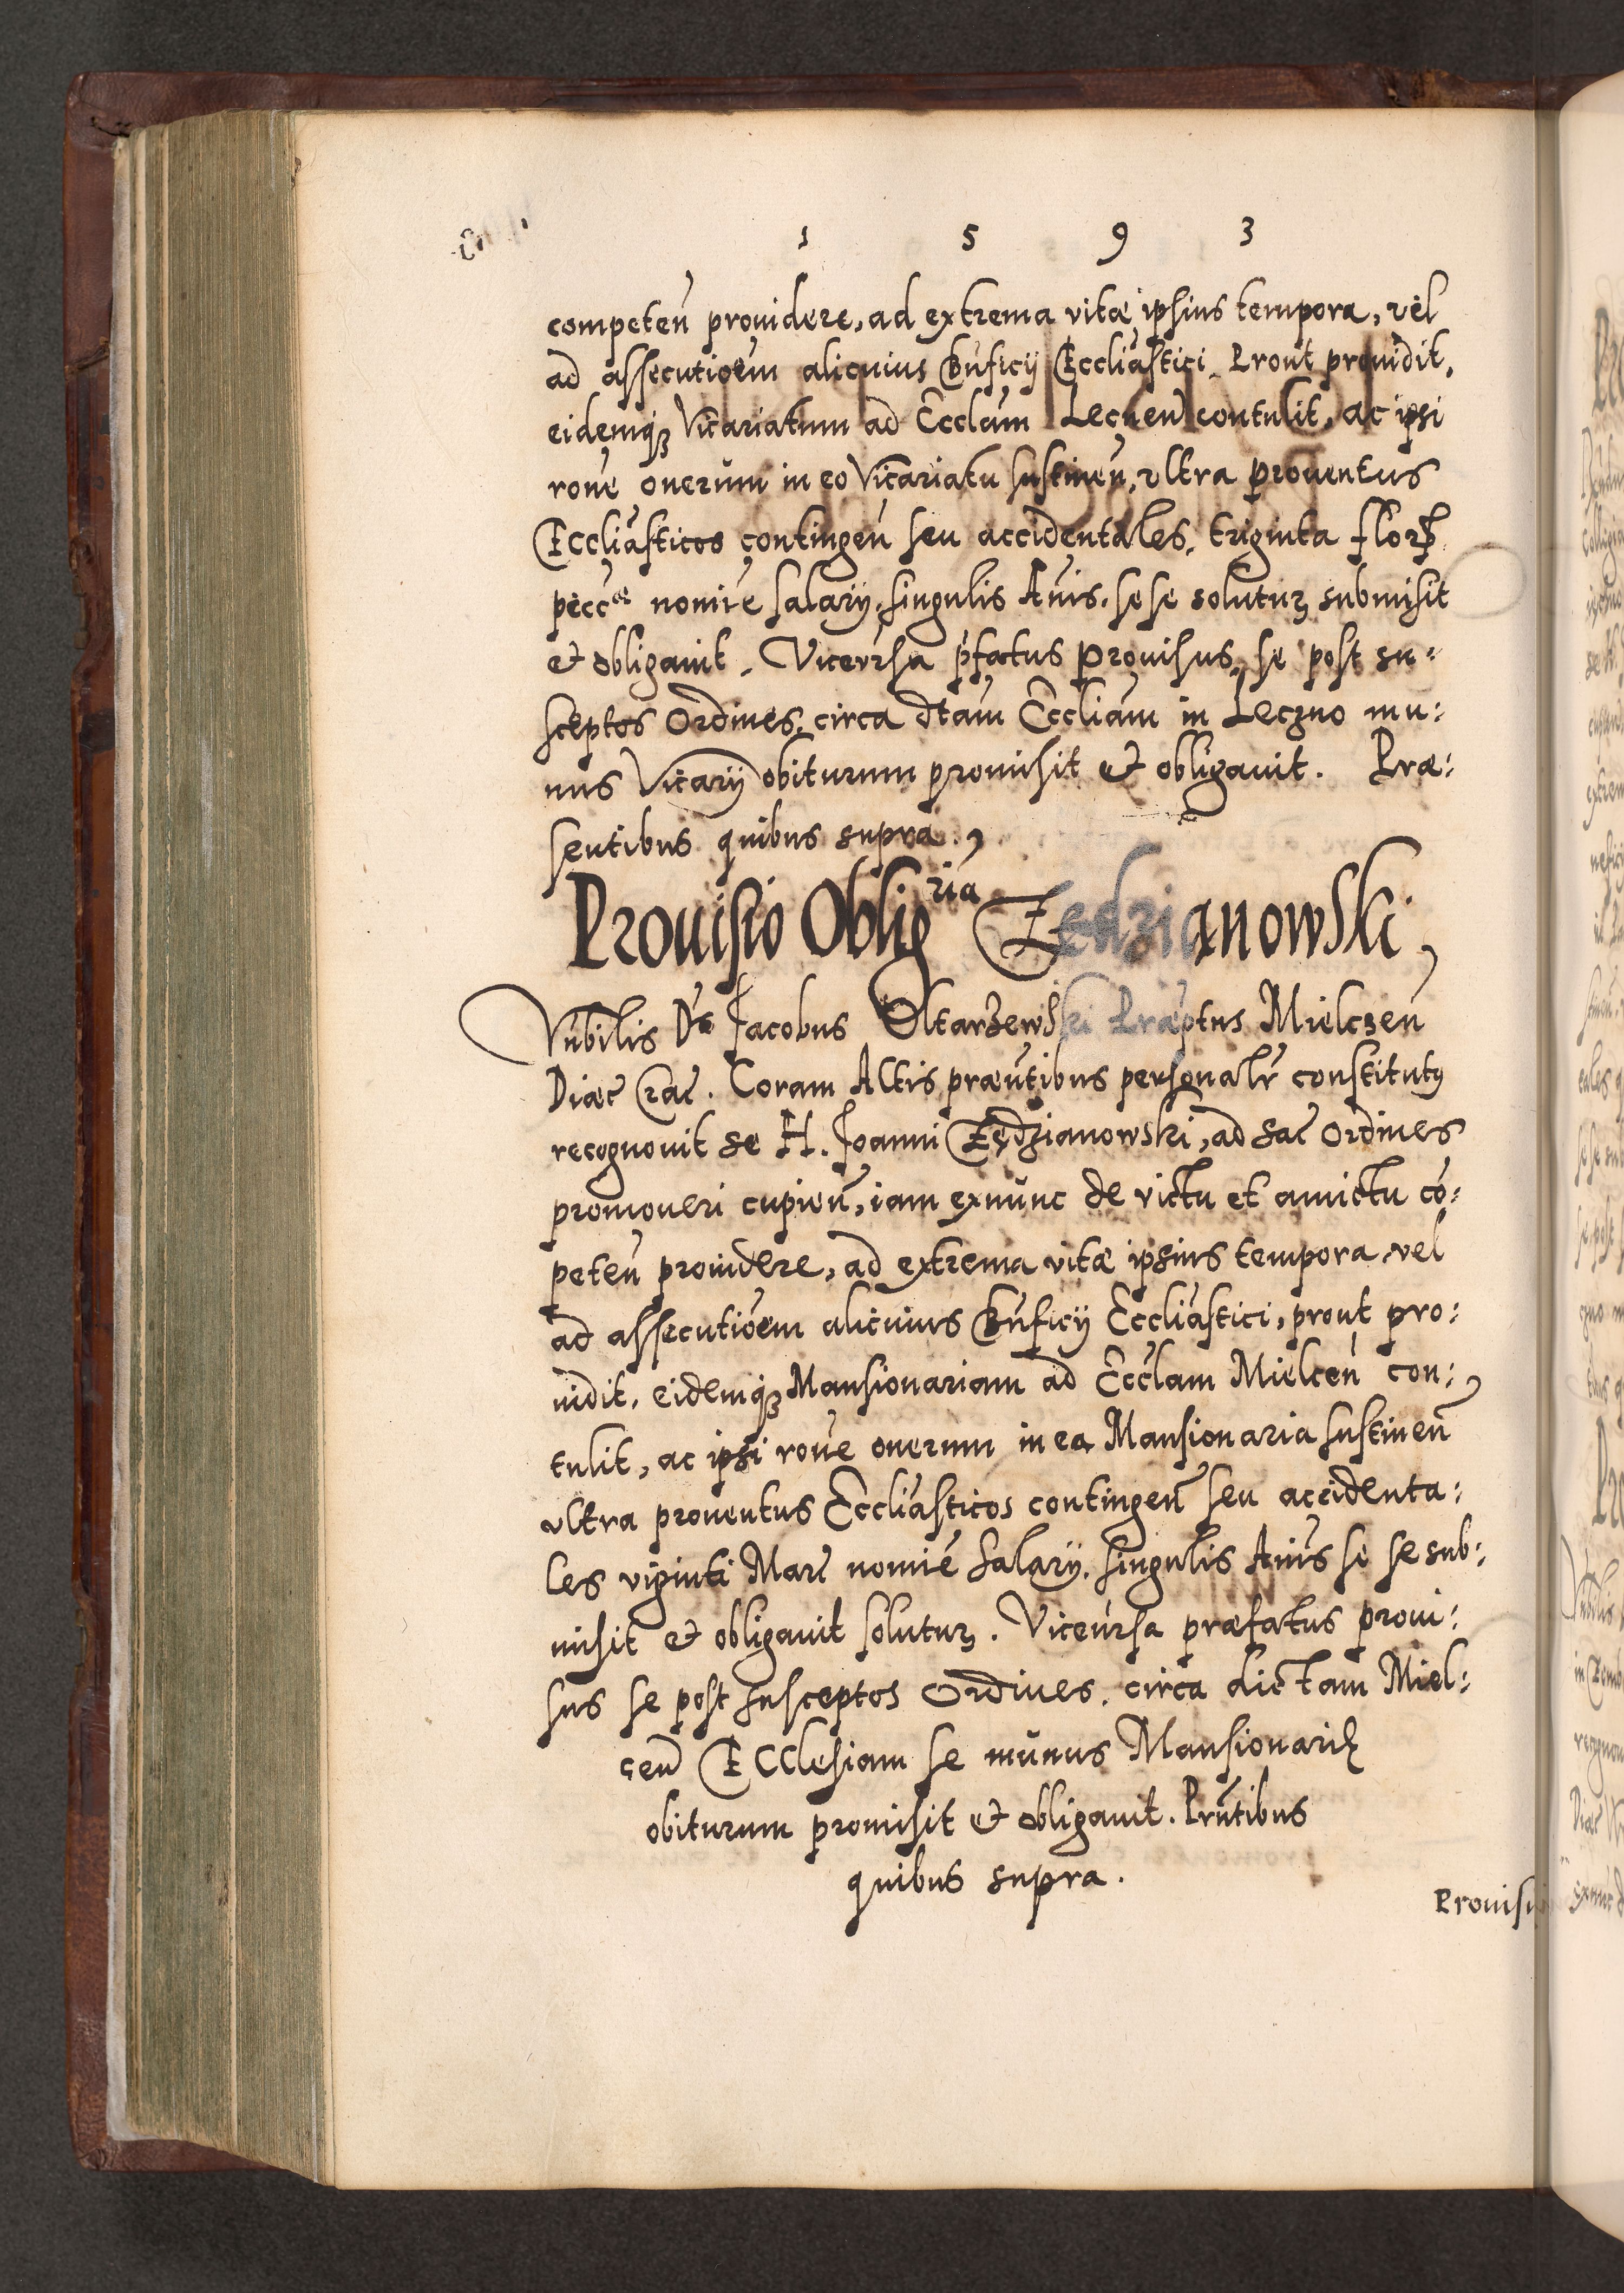 1 5 9 3
competeń prouidere, ad extrema vitæ ipsius tempora, vel
ad assecutioem alicuius Bnficij Eccliastici. Prout prouidit,
eidemq₃ Vicariatum ad Ecclam Lecnen contulit, ac ipsi
rone onerum in eo Vicariatu sustineń, vltra prouentus
Eccliasticos contingeń seu accidentales, triginta flor
pecc^æ nomine salarij, singulis Anis, se se soluturꝫ submisit
et obligauit. Viceversa pfatus prouisus, se post su=
sceptos Ordines, circa dtam Eccliam in Leczno mu:
nus Vicarij obiturum promisit et obligauit. Præ:
sentibus quibus supra.
Prouisio Oblig^ria Zedzianowski
Vnbilis Ds Jacobus Oltarzewski Præptus Mielczeń
Diæc Crac. Coram Actis præntibus personalr constitutꝯ
recognouit se H. Joanni Zędzianowski, ad sac Ordines
promoueri cupień, iam exnunc de victu et amictu cō:
peteń prouidere, ad extrema vitæ ipsius tempora, vel
ad assecutioem alicuius Bnficij Eccliastici, prout pro:
uidit, eidemq₃ Mansionariam ad Ecclam Mielceń con:
tulit, ac ipsi rone onerum in ea Mansionaria sustineń
vltra prouentus Eccliasticos contingeń seu accidenta:
les viginti Marc nomie salarij, singulis Anis se se sub:
misit et obligauit soluturꝫ. Viceursa præfatus proui:
sus se post susceptos Ordines, circa dictam Miel:
ceń Ecclesiam se munus Mansionarij
obiturum promisit et obligauit. Prntibus
quibus supra.
Prouisio